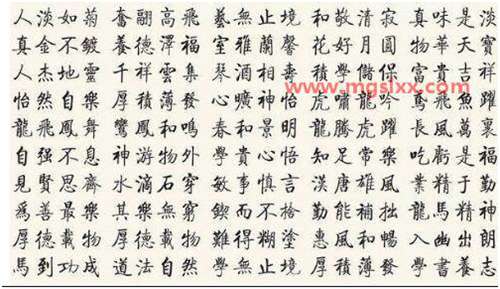 人淡如菊 奮翮高飛 藝無止境 和敬清寂 真味是淡
真金不鍍 養德澤福 室雅蘭馨 花好月圓 物華天寶
人杰地靈 千祥雲集 琴 酒相 積學儲 富貴吉祥
www.mgslxx.com
怡然自樂 厚積薄發 心曠神怡 虎嘯龍吟 鳶飛魚躍
龍飛鳳舞 鸞鳳和鳴 春和景明 騰虎躍 長風萬裏
自强不息 神游物外 學貴心悟 知足常樂 吃虧是福
見賢思齊 水滴石穿 敏事慎言 漢唐雄風 業精于勤
爲善最樂 其樂無窮 鍥而不捨 勤能補拙 龍馬精神
厚德載物 厚德載物 難得糊塗 惠風和暢 入幽出朗
馬到功成 道法自然 學無止境 厚積薄發 學書養志